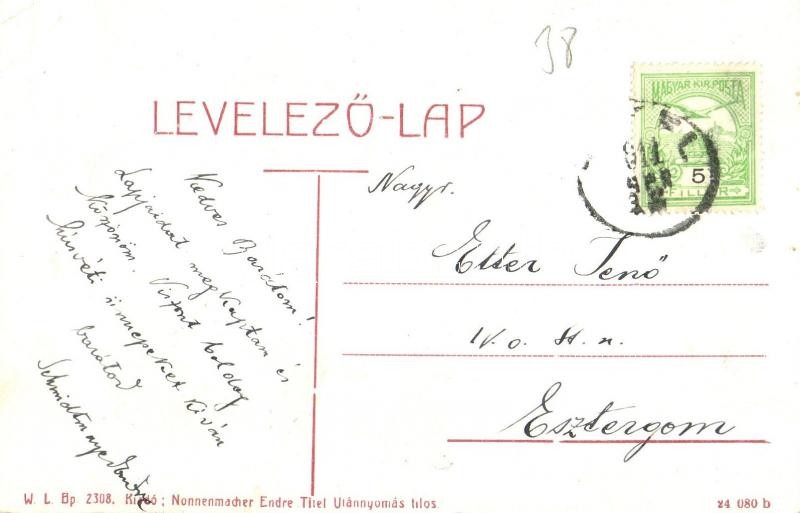 38
MAGYAR KIR. POSTA
5
FILLÉR
LEVELEZŐ-LAP
Kedves Barátom!
Lapjaidat megkaptam és
Köszönöm. Viszont boldog
húsvéti ünnepeket kíván
barátod
Nagyr.
Etter Jenő
IV. o. t. n.
Esztergom
W. L. Bp. 2308. Kiadó; Nonnenmacher Endre Titel Utánnyomás tilos.
24 080 b